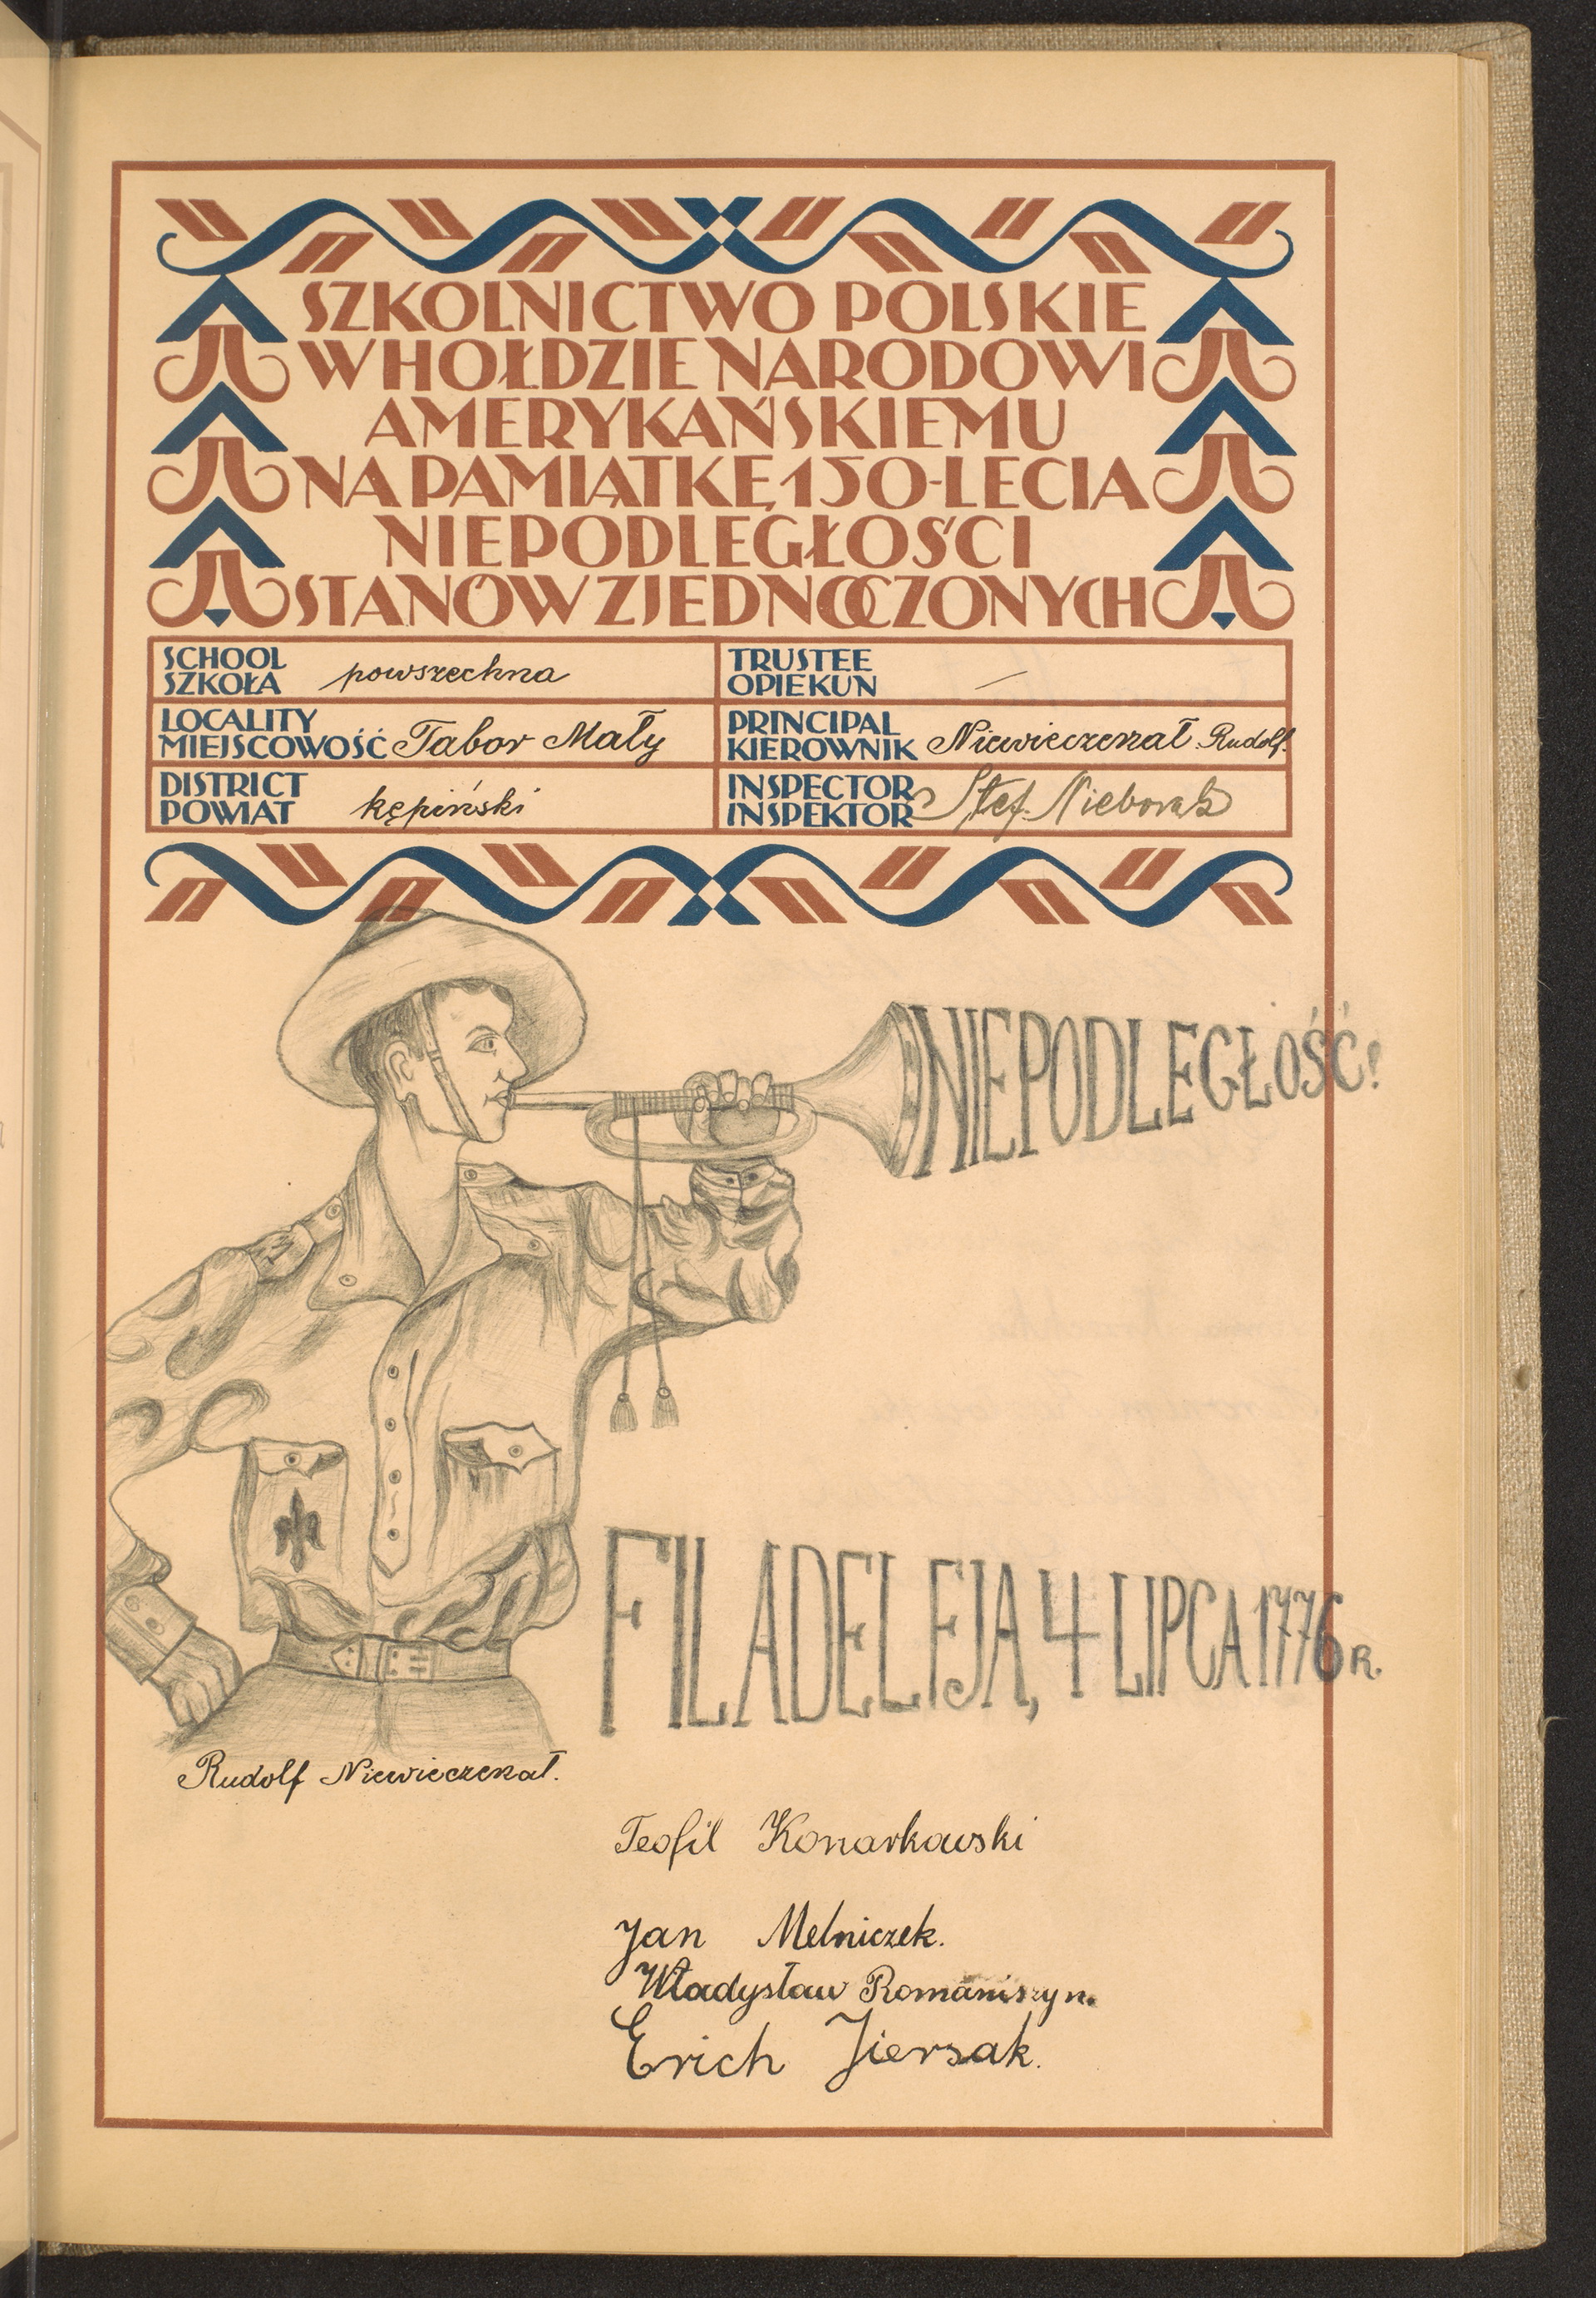 SZKOLNICTWO POLSKIE
W HOŁDZIE NARODOWI
AMERYKAŃSKIEMU
NA PAMIĄTKĘ 150-LECIA
NIEPODLEGŁOŚCI
STANÓW ZJEDNOCZONYCH
SCHOOL
SZKOŁA powszechna
TRUSTEE
OPIEKUN —
LOCALITY
MIEJSCOWOŚĆ Tabor Mały
PRINCIPAL
KIEROWNIK Niewieczerzał Rudolf.
DISTRICT
POWIAT kępiński
INSPECTOR
INSPEKTOR Stef. Nieborak
NIEPODLEGŁOŚĆ!
FILADELFJA, 4 LIPCA 1776 R.
Rudolf Niewieczerzał.
Teofil Konarkowski
Jan Melniczek.
Władysław Romaniszyn.
Erich Jiersak.